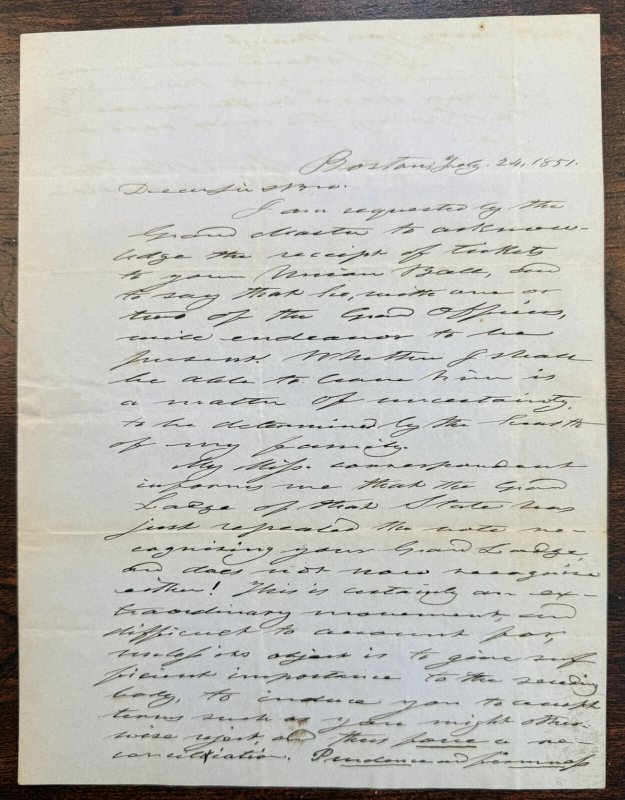 Boston, July. 24, 1851.
Dear Sir & Bro.
I am requested by the
Grand Master to acknow-
ledge the receipt of tickets
to your Union Ball, and
to say that he, with one or
two of the Grand Officers,
will endeavor to be
present. Whether I shall
be able to leave him is
a matter of uncertainty,
to be determined by the health
of my family.
My Miss. correspondent
informs me that the Grand
Lodge of that State has
just repealed the vote re-
cognising your Grand Lodge,
and does not now recognise
either! This is certainly an ex-
traordinary movement, and
difficult to account for,
unless its object is to give suf
ficient importance to the seceding
body, to induce you to accept
terms such as you might other-
wise reject, and thus force a re-
conciliation. Prudence and firmness